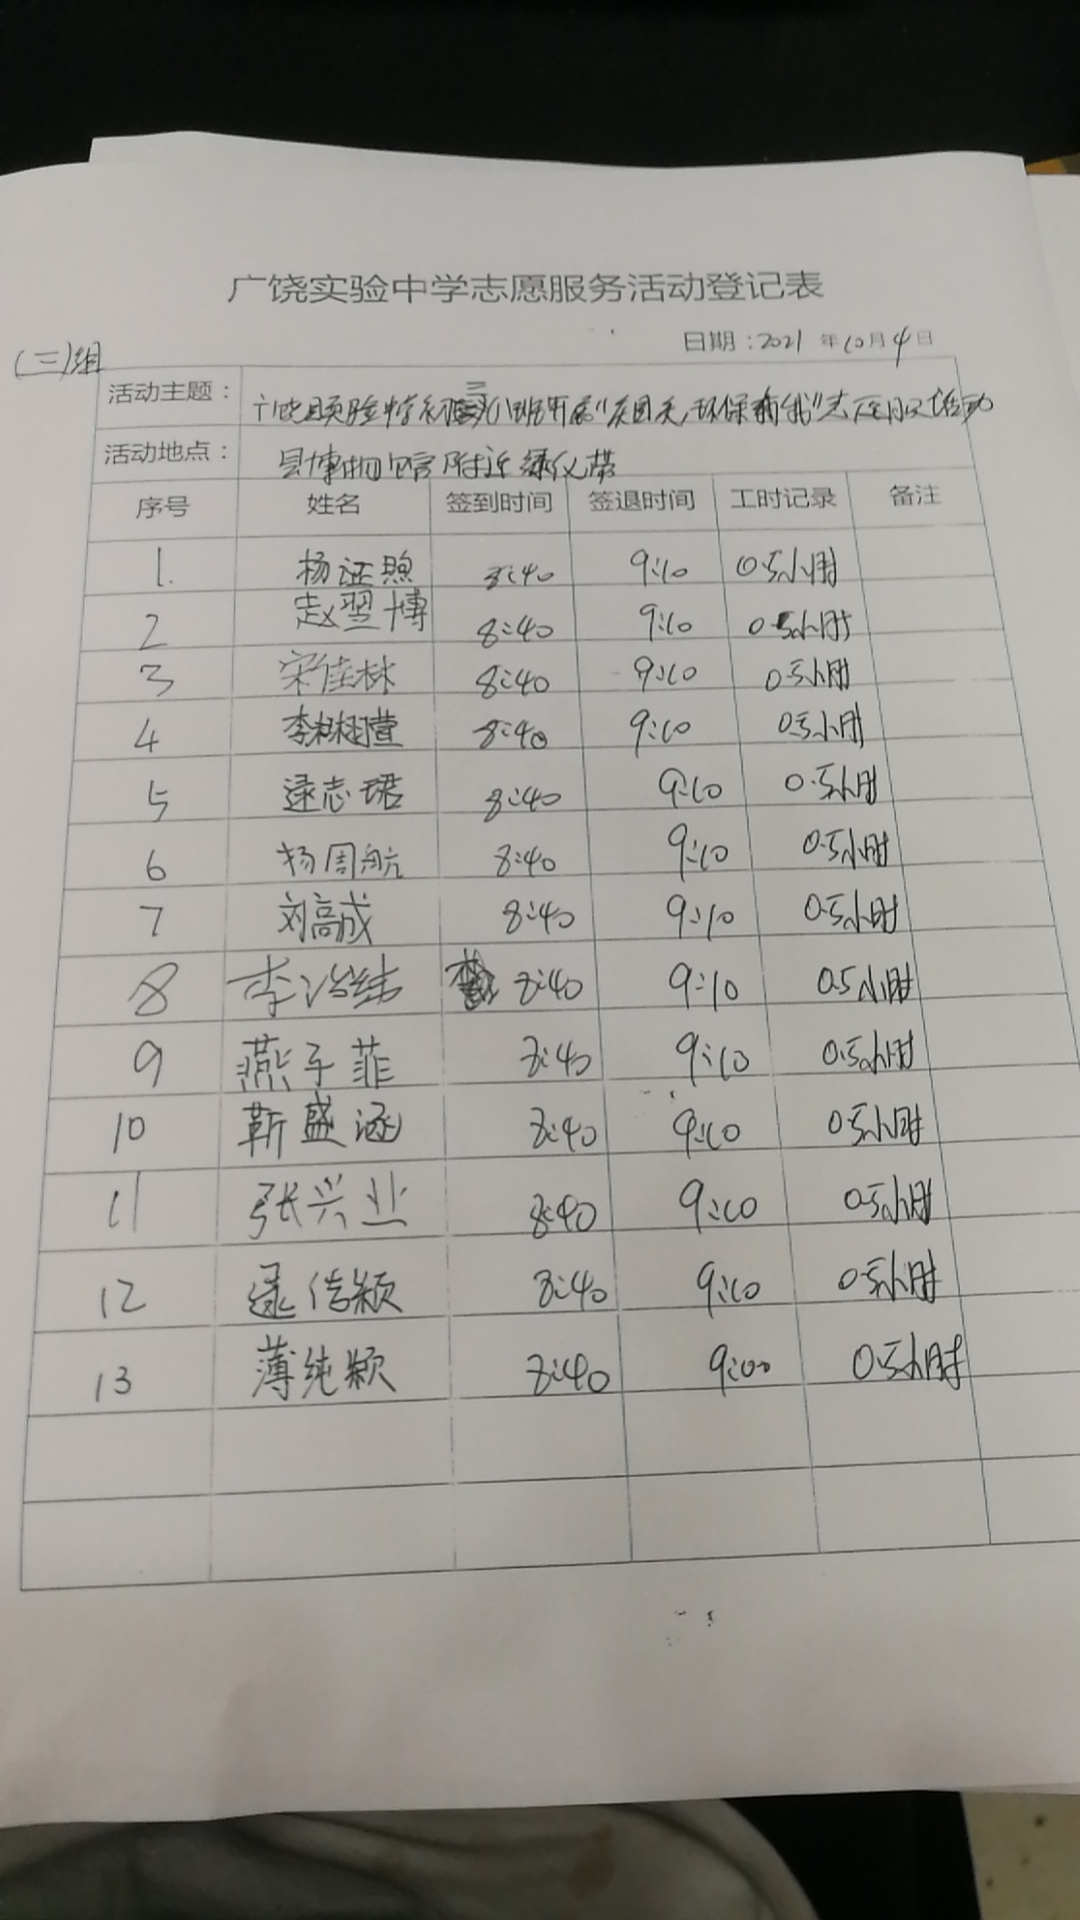 广饶实验中学志愿服务活动登记表
日期：2021 年10月4日
(三)组
活动主题： 八班开展"庆国庆，环保有我"志愿服务活动
活动地点： 县博物馆附近绿化带
序号 姓名 签到时间 签退时间 工时记录 备注
1. 杨证照 8:40 9:10 0.5小时
2 赵翌博 8:40 9:10 0.5小时
3 宋佳林 8:40 9:10 0.5小时
4 李 8:40 9:10 0.5小时
5 逯志珺 8:40 9:10 0.5小时
6 杨周航 8:40 9:10 0.5小时
7 刘高成 8:40 9:10 0.5小时
8 李治纬 8:40 9:10 0.5小时
9 燕子菲 8:40 9:10 0.5小时
10 靳盛涵 8:40 9:10 0.5小时
11 张兴业 8:40 9:10 0.5小时
12 逯信颖 8:40 9:10 0.5小时
13 薄纯颖 8:40 9:00 0.5小时